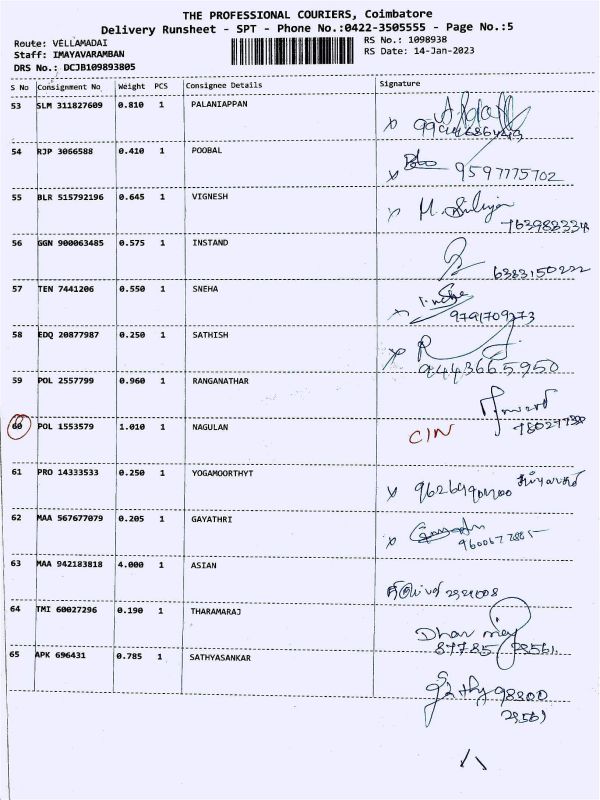 THE PROFESSIONAL COURIERS, Coimbatore
Delivery Runsheet - SPT - Phone No.:0422-3505555 - Page No.:5
Route: VELLAMADAI
RS No.: 1098938
Staff: IMAYAVARAMBAN
RS Date: 14-Jan-2023
DRS No.: DCJB109893805
S No Consignment No Weight PCS Consignee Details Signature
53 SLM 311827609 0.810 1 PALANIAPPAN
x
54 RJP 3066588 0.410 1 POOBAL
x 9597775702
55 BLR 515792196 0.645 1 VIGNESH
x
56 GGN 900063485 0.575 1 INSTAND
6383150222
57 TEN 7441206 0.550 1 SNEHA
9791709273
58 EDQ 20877987 0.250 1 SATHISH
x R
9443665950
59 POL 2557799 0.960 1 RANGANATHAR
60 POL 1553579 1.010 1 NAGULAN
C/N
61 PRO 14333533 0.250 1 YOGAMOORTHYT
x
62 MAA 567677079 0.205 1 GAYATHRI
x
63 MAA 942183818 4.000 1 ASIAN
64 TMI 60027296 0.190 1 THARAMARAJ
87785 28561
65 APK 696431 0.785 1 SATHYASANKAR
98800
28561